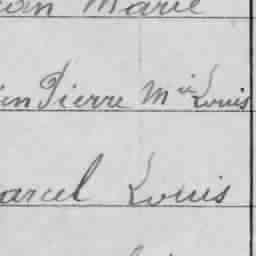 ean Marie
en Pierre Mie Louis
arcel Louis